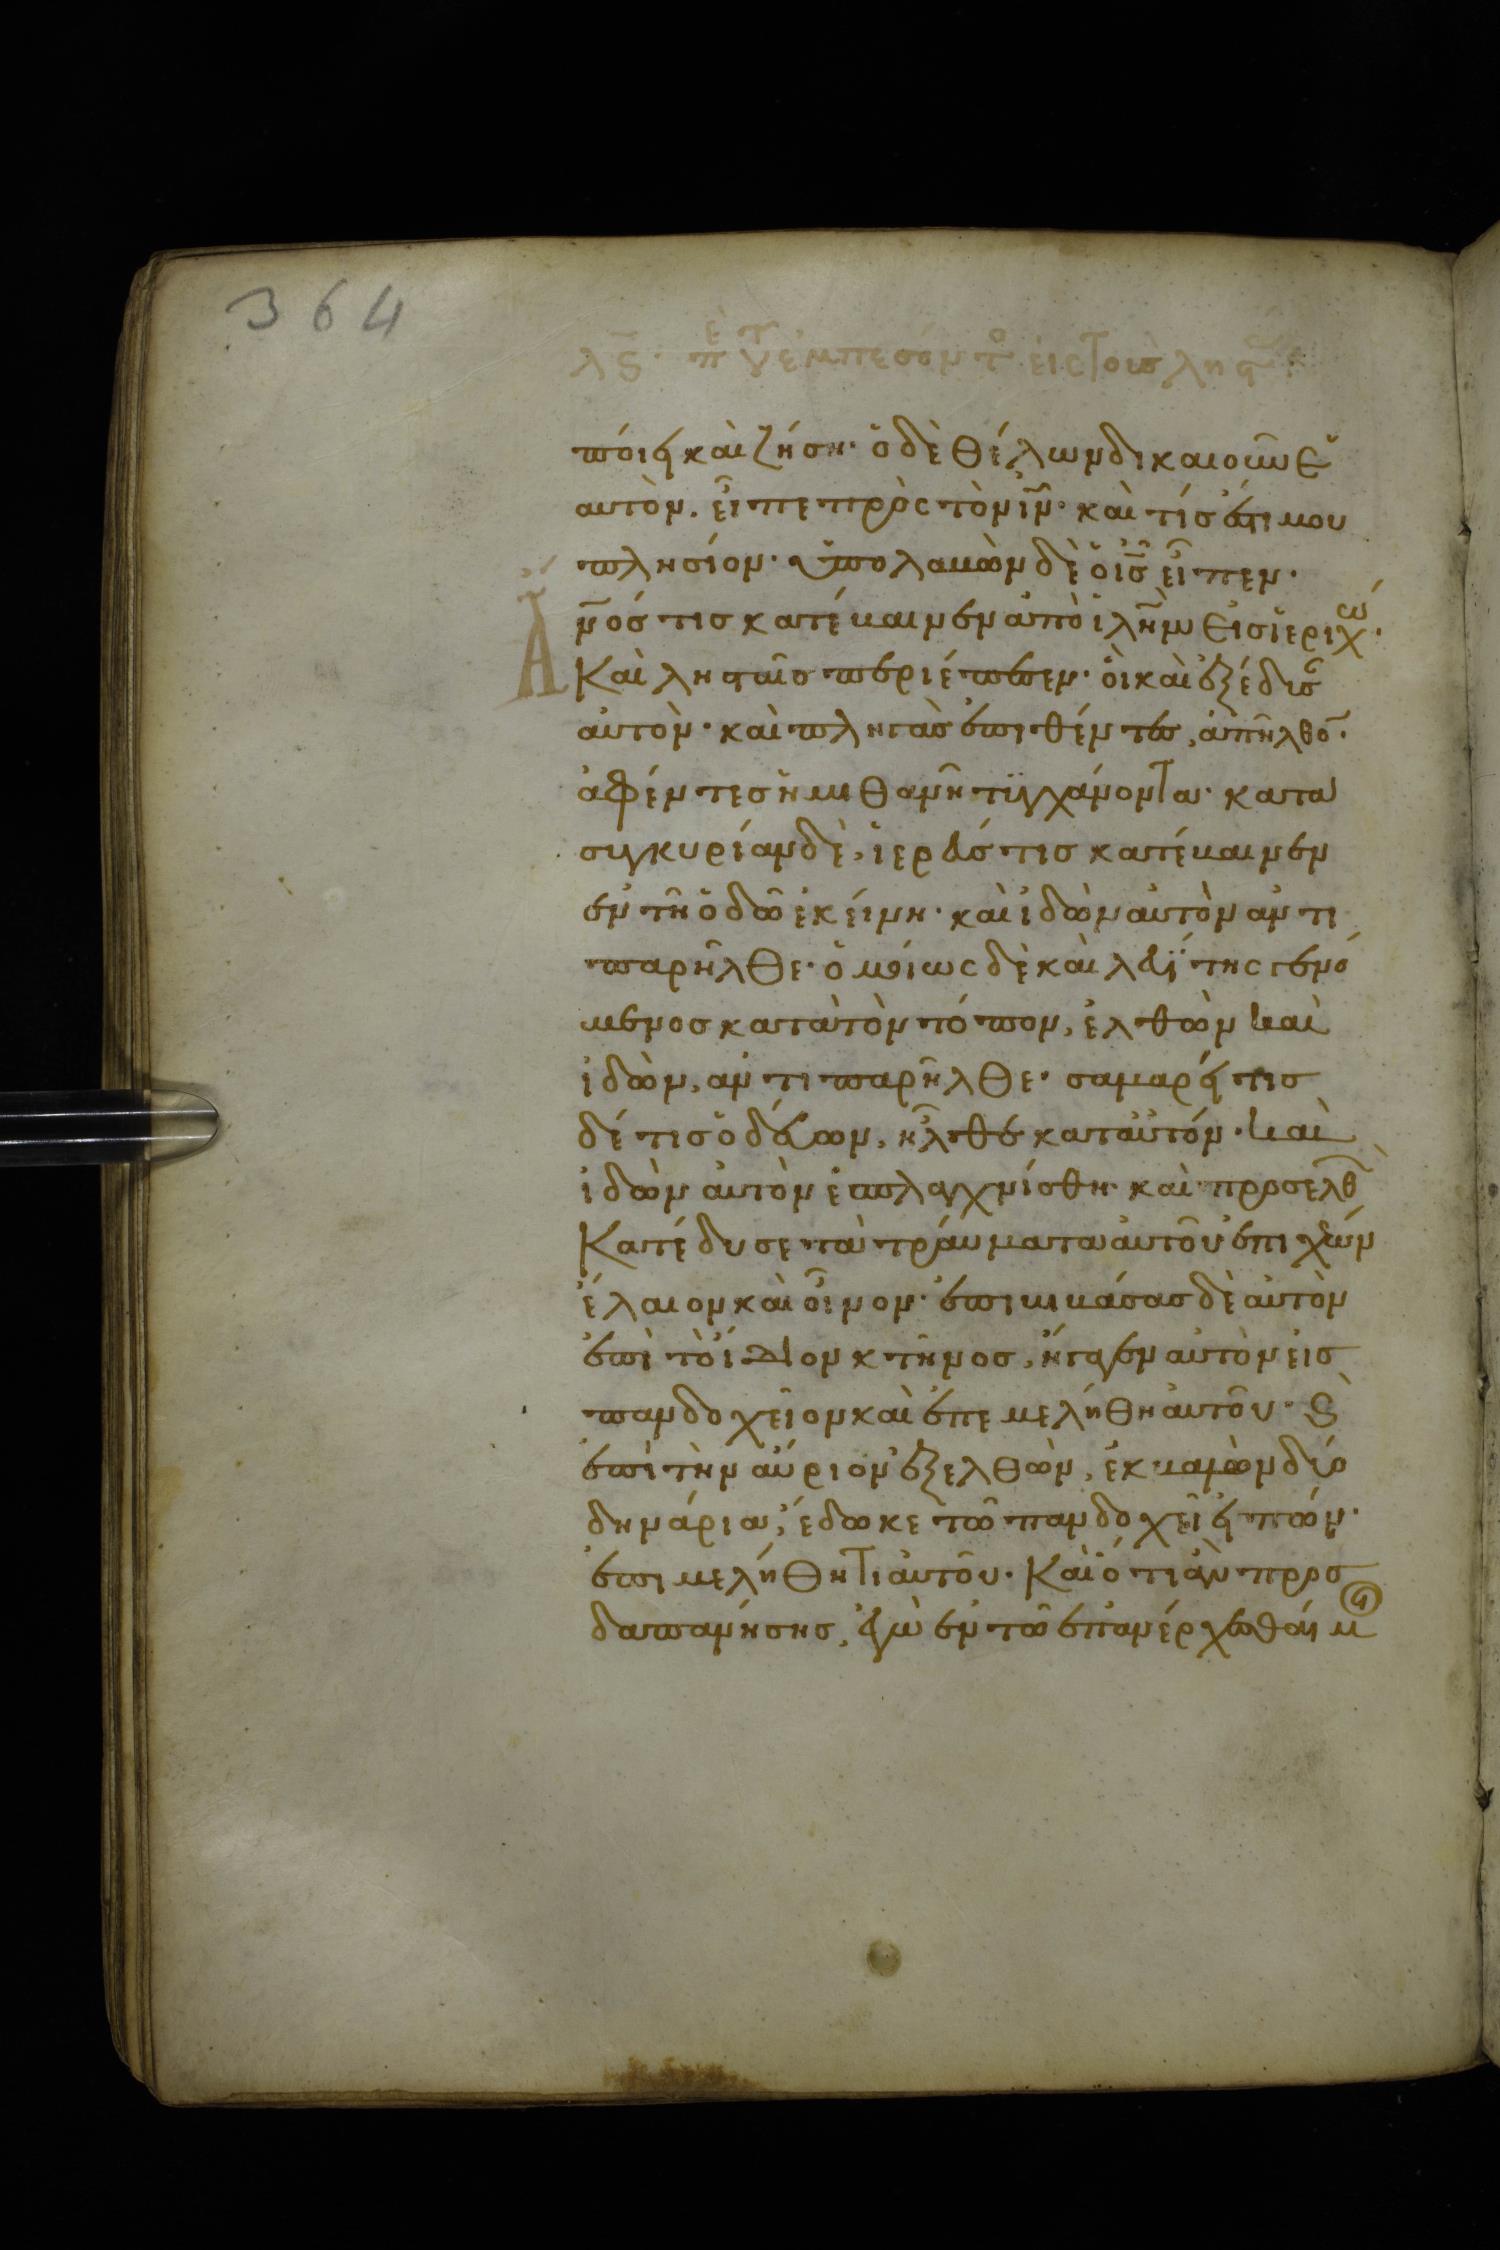 364
λϛ· πε τ ἐμπεσόντο εἰς τοὺς ληστ
ποίει καὶ ζήση· ὁ δὲ θέλων δικαιοῦν ἑ
αυτὸν. εἶπε πρὸς τὸν ι̅ν· καὶ τίς ἐστι μου
πλησίον· ὑπολαβὼν δὲ ὁ ι̅ς εἶπεν·
Α
ν̅ος τις κατέβαινεν ἀπὸ ι̅λημ εἰς ἱεριχώ·
Καὶ λησταῖς περιέπεσεν· οἳ καὶ ἐξέδυσ
αὐτὸν· καὶ πληγὰς ἐπιθέντες, ἀπῆλθο̅·
ἀφέντες ἡμιθανῆ τυγχάνοντα· κατα
συγκυρίαν δὲ, ἱερεύς τις κατέβαινεν
ἐν τῆ ὁδῶ ἐκείνη· καὶ ἰδὼν αὐτὸν ἀντι
παρῆλθε· ὁμοίως δὲ καὶ λευΐτης γενό
μενος κατὰ τὸν τόπον, ἐλθὼν καὶ
ἰδὼν, ἀντιπαρῆλθε· σαμαρείτις
δέ τις ὁδεύων, ἦλθε κατ αὐτόν· καὶ
ἰδὼν αὐτὸν ἐσπλαγχνίσθη· καὶ προσελθ
Κατέδυσε τὰ τράυματα αὐτοῦ ἐπιχέων
ἔλαιον καὶ οἶνον· ἐπιβιβάσας δὲ αὐτὸν
ἐπὶ τὸ ἴδιον κτῆνος, ἤγαγεν αὐτὸν εἰς
πανδοχεῖον καὶ ἐπεμελήθη αὐτοῦ· Ϛ
ἐπὶ τὴν αὔριον ἐξελθὼν, ἐκβαλὼν δύο
δηνάρια, ἔδωκε τῶ πανδοχεῖ εἰπών·
ἐπιμελήθητι αὐτοῦ· Καὶ ὅ τι ἂν προσ
δαπανήσης, ἐγὼ ἐν τῶ ἐπανέρχεσθαί μ